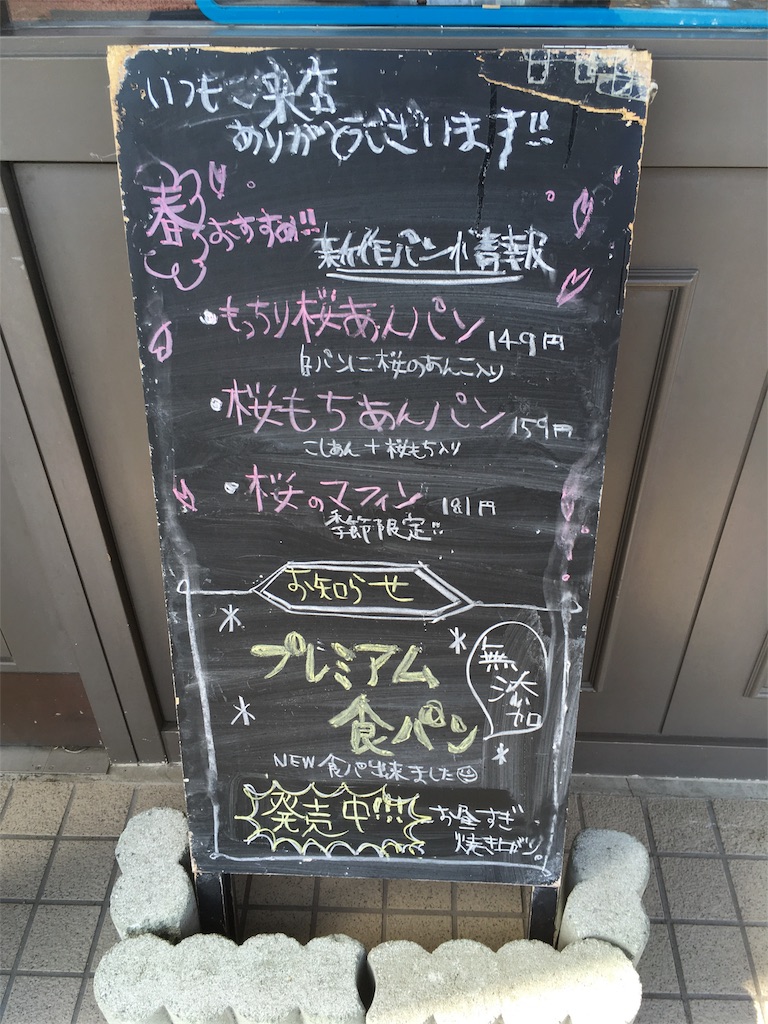 いつもご来店
ありがとうございます!!
春のおすすめ!!
新作パン情報
・もっちり桜あんパン 149円
白パンに桜のあんこ入り
・桜もちあんパン 159円
こしあん+桜もち入り
・桜のマフィン 181円
季節限定!!
お知らせ
プレミアム
食パン
無添加
NEW食パン出来ました
発売中!!!
お昼すぎ
焼き上がり